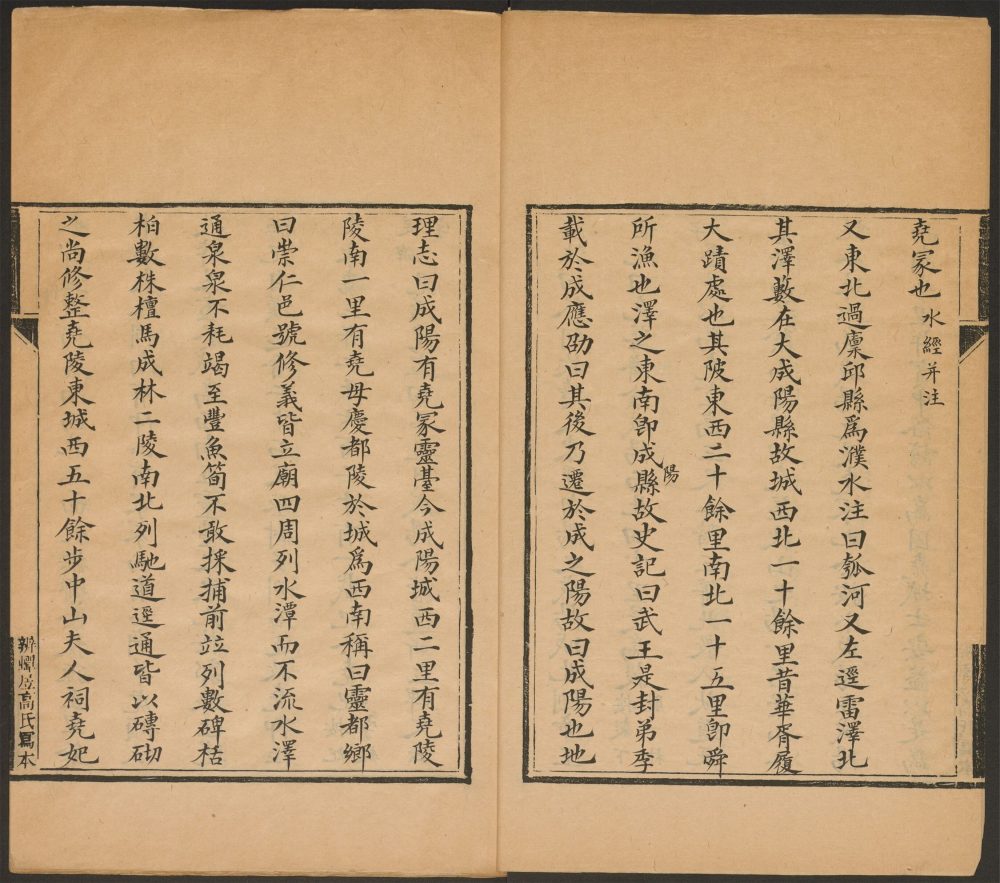 堯冢也 水經并注
又東北過廩邱縣爲濮水注曰瓠河又左逕雷澤北
其澤藪在大成陽縣故城西北一十餘里昔華胥履
大蹟處也其陂東西二十餘里南北一十五里卽舜
所漁也澤之東南卽成陽縣故史記曰武王是封弟季
載於成應劭曰其後乃遷於成之陽故曰成陽也地
理志曰成陽有堯冢靈臺今成陽城西二里有堯陵
陵南一里有堯母慶都陵於城爲西南稱曰靈都鄉
曰崇仁邑號修義皆立廟四周列水潭而不流水澤
通泉泉不耗竭至豐魚筍不敢採捕前竝列數碑栝
柏數株檀馬成林二陵南北列馳道逕通皆以磚砌
之尚修整堯陵東城西五十餘步中山夫人祠堯妃
辨蟫居高氏寫本